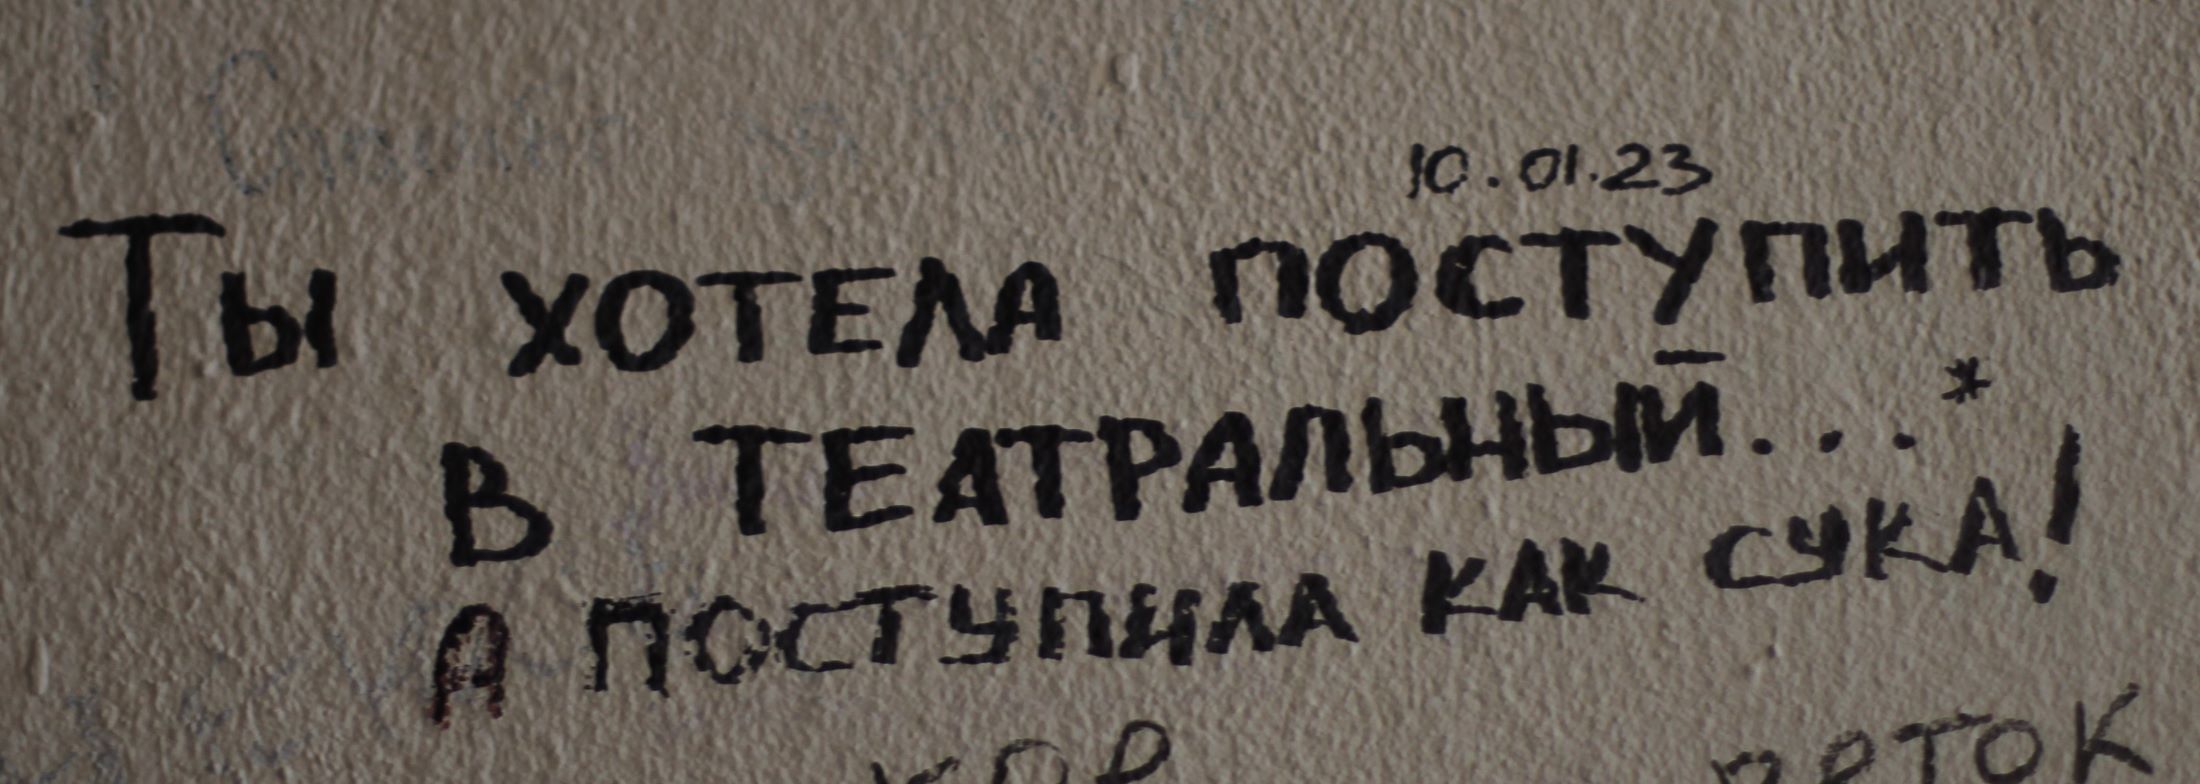 10.01.23
Ты ХОТЕЛА ПОСТУПИТЬ
В ТЕАТРАЛЬНЫЙ...*
А ПОСТУПИЛА КАК СУКА!